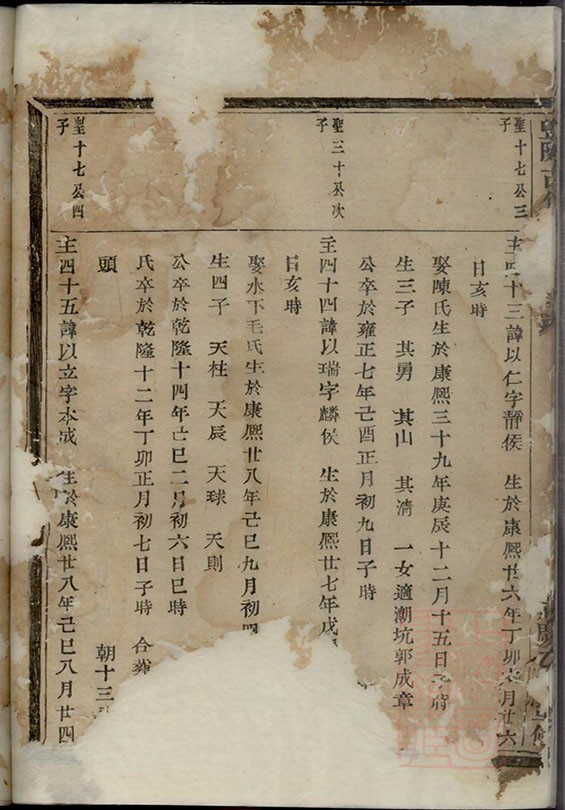 聖十七公三
子
主四十三諱以仁字靜侯 生於康熙廿六年丁卯 月廿六
日亥時
娶陳氏生於康熙三十九年庚辰十二月十五日子時
生三子 其勇 其山 其清 一女適潮坑郭成章
公卒於雍正七年己酉正月初九日子時
聖三十公次
子
主四十四諱以瑞字麟侯 生於康熙廿七年戊
日亥時
娶水下毛氏生於康熙廿八年己巳九月初四
生四子 天柱 天辰 天球 天則
公卒於乾隆十四年己巳二月初六日巳時
氏卒於乾隆十二年丁卯正月初七日子時 合葬
頭 朝十三
聖十七公四
子
主四十五諱以立字本成 生於康熙廿八年己巳八月廿四